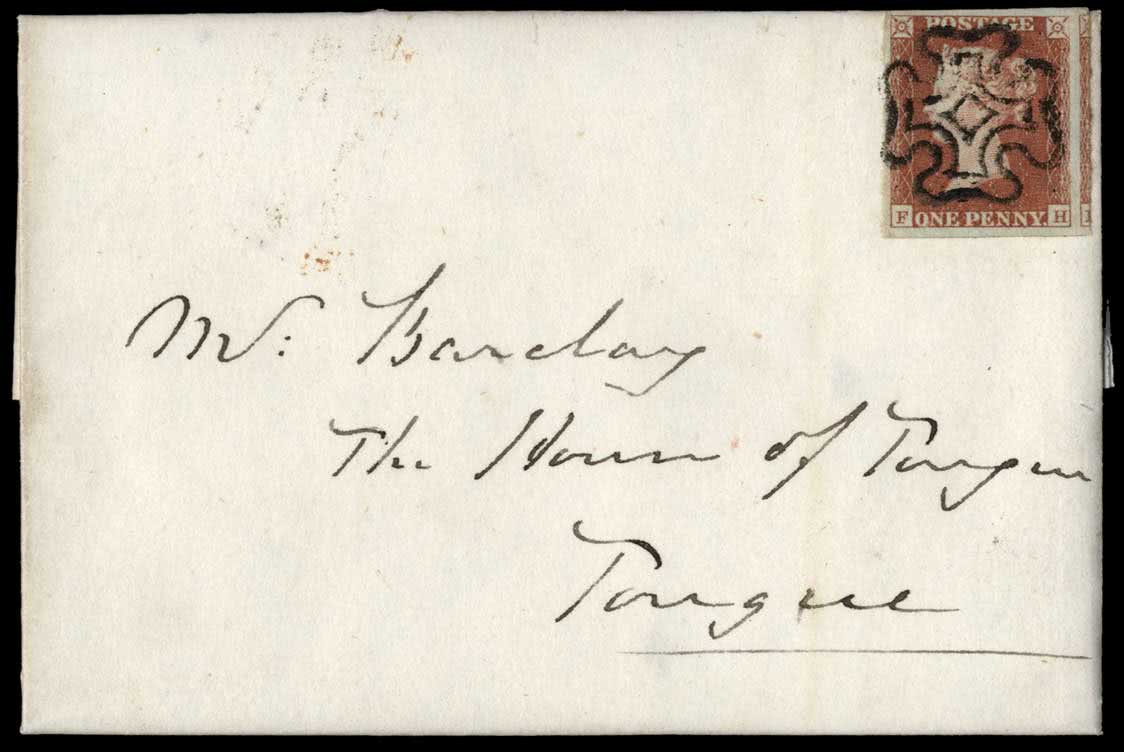 POSTAGE
F ONE PENNY. H
Mr: Barclay
The House of Tongue
Tongue